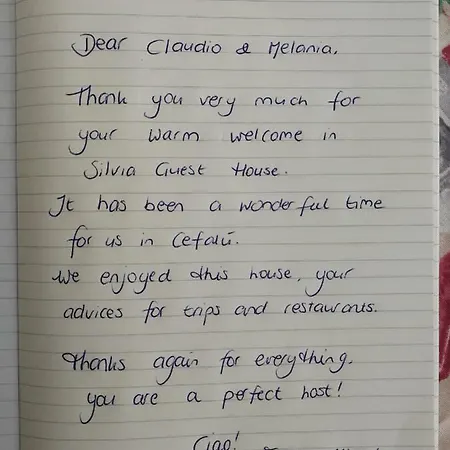 Dear Claudio & Melania,
Thank you very much for
your warm welcome in
Silvia Guest House.
It has been a wonderful time
for us in Cefalú.
We enjoyed this house, your
advices for trips and restaurants.
Thanks again for everything.
you are a perfect host!
Ciao!